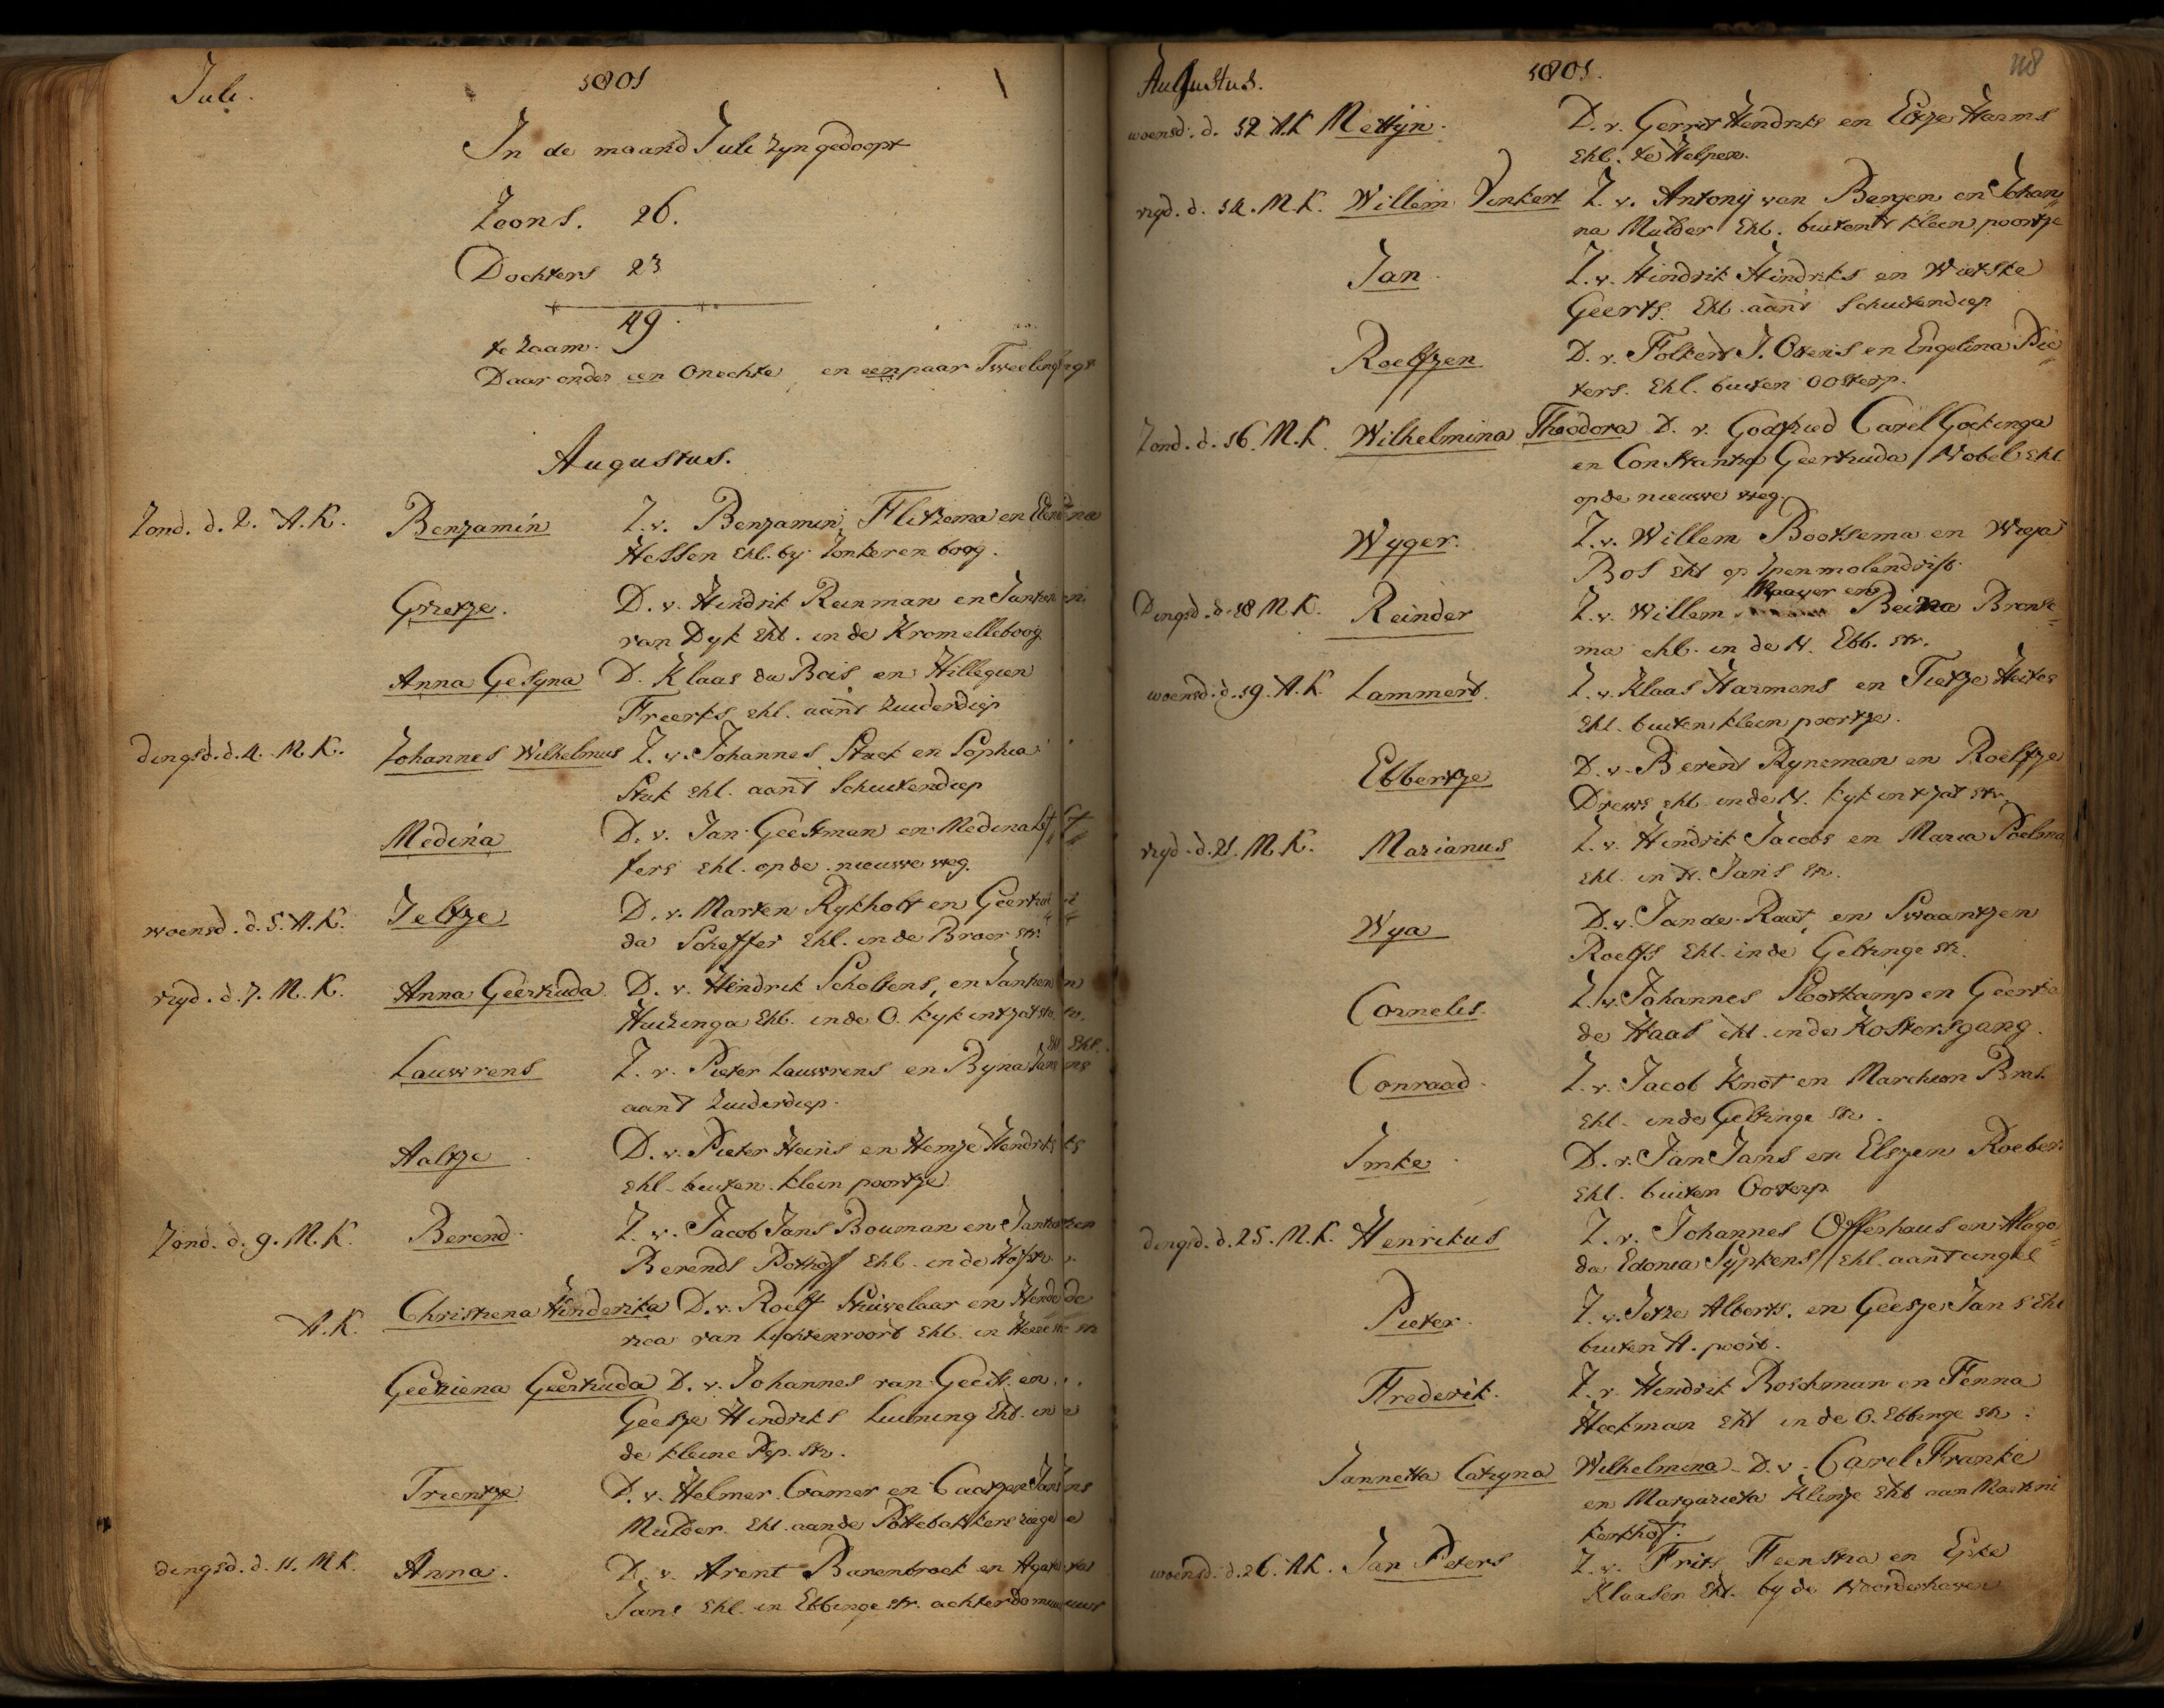 Juli. 1801
In de maand Juli zyn gedoopt
Zoons. 26.
Dochters 23
te zaam. 49.
Daar onder een Onechte en een paar Tweelings
Augustus.
Zond. d. 2. A.K. Benjamin Z. v. Benjamin Flitzema en
Hessen Ehl. by Jonkeren boog.
Grietje. D. v. Hindrik Reinman en Jantien
van Dyk Ehl. in de Kromelleboog
Anna Gesyna D. Klaas du Bois en Hillegien
Freerks Ehl. aan't Zuiderdiep
dingsd. d. 4. M.K. Johannes Wilhelmus Z. v. Johannes Stuck en Sophia
Stuk Ehl. aant Schuitendiep
Medina D. v. Jan Geestman en Medina
fers Ehl. op de nieuwe weg.
woensd. d. 5. A.K. Jeltje D. v. Marten Rykholt en Geertrui
da Scheffer Ehl. in de Broer str.
vryd. d. 7. M.K. Anna Geertruda D. v. Hindrik Scholtens, en Jantien
Huizinga Ehl. in de O. kyk int jat str.
Lauwrens Z. v. Pieter Lauwrens en Ryna Jans Ehl.
aant Zuiderdiep.
Aaltje D. v. Pieter Heins en Hemje Hendriks
Ehl. buiten klein poortje
Zond. d. 9. M.K. Berend. Z. v. Jacob Jans Bouman en Jantien
Berends Pothof Ehl. in de Hofstr.
A.K. Christiena Hinderika D. v. Roelf Stuivelaar en Hende
rica van Lychtenvoort Ehl. in Heere str
Geeziena Geertruda D. v. Johannes van Geest. en
Geesje Hindriks Luining Ehl. in
de kleine Pep. str.
Trientje D. v. Helmer Cramer en Caatjen Jans
Mulder. Ehl. aan de Pottebakkers
dingsd. d. 11. M.K. Anna. D. v. Arent Barenbroek en
Jans Ehl. in Ebbinge str. achter de muur
Augustus. 1801. 118
woensd. d. 12 A.K Mettijn. D. v. Gerrit Hendriks en Eltje Harms
Ehl. te Helpen.
vryd. d. 14. M.K. Willem Vinkert Z. v. Antonij van Bergen en Johan
na Mulder Ehl. buiten't kleen poortje
Jan Z. v. Hindrik Hindriks en Wietske
Geerts. Ehl. aan't Schuitendiep
Roelfzen D. v. Folkert J. Otens en Engelina Pie
ters. Ehl. buiten oosterp.
Zond. d. 16. M.K. Wilhelmina Theodora D. v. Godfried Carel Gockinga
en Constantia Geertruda Nobel Ehl
op de nieuwe weg.
Wyger. Z. v. Willem Bootsema en Wieja
Bos Ehl op Spenmolendrift
Dingsd. d. 18 M.K. Reinder Z. v. Willem en Beina Bronse
ma ehl. in de N. Ebb. str.
woensd. d. 19. A.K. Lammert. Z. v. Klaas Harmens en Tietje Heites
Ehl. buiten kleen poortje.
Ebbertje D. v. Berent Rynsman en Roelfje
Drews ehl in de N. kyk int jat str.
vryd. d. 21. M.K. Marianus Z. v. Hindrik Jacobs en Maria Poelma
Ehl. in N. Jans str.
Wya D. v. Jan de Raat, en Swaantjen
Roelfs Ehl. in de Geltinge str.
Cornelis. Z. v. Johannes Slootkamp en Geertie
de Haas Ehl. in de Kostersgang.
Conraad. Z. v. Jacob Knot en Marchien
Ehl. in de Geltinge str.
Imke D. v. Jan Jans en Elsjen Roebers
Ehl. buiten Oosterp.
dingsd. d. 25. M.K. Henrikus Z. v. Johannes Offerhaus en Alago
da Edonia Sypkens Ehl. aan't
Pieter. Z. v. Jetze Alberts. en Geesje Jans Ehl
buiten H. poort.
Frederik. Z. v. Hindrik Boschman en Fenna
Heekman Ehl in de O. Ebbinge str.
Jannetta Catryna Wilhelmina D. v. Carel Franke
en Margarieta Klinje Ehl aan Martini
kerkhof.
woensd. d. 26. A.K. Jan Peters Z. v. Frits Feenstra en Epke
Klaasen Ehl. by de Noorderhaven